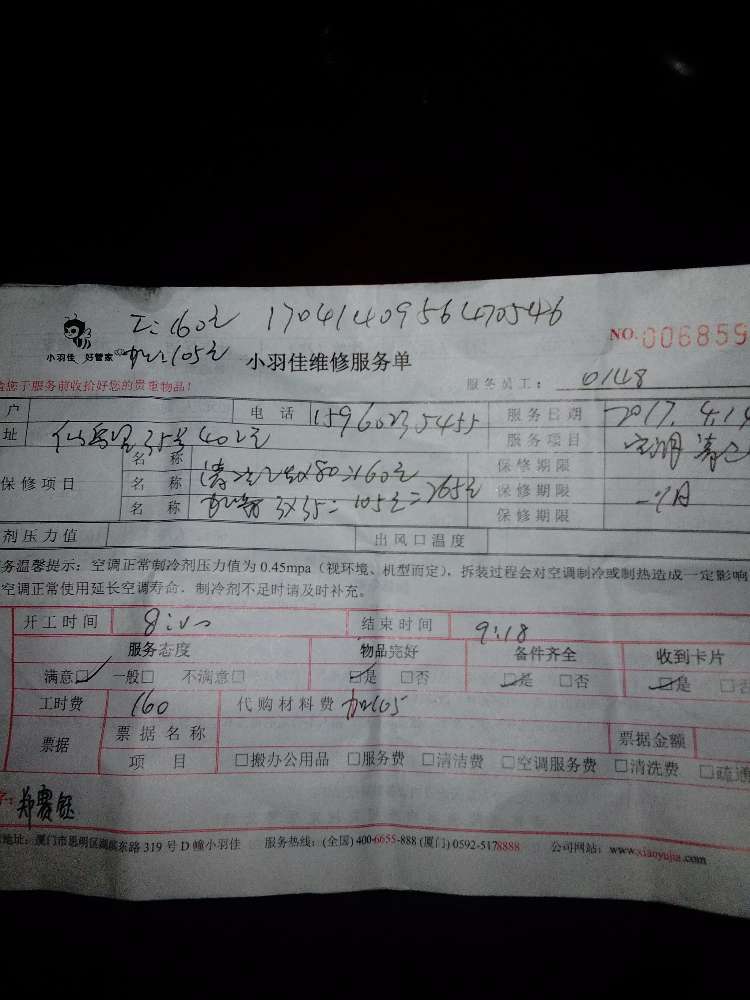 工:160元 17041409564705​46
加:105元
小羽佳 好管家
小羽佳维修服务单
NO.006859
您于服务前收拾好您的贵重物品!
服务员工: 0148
户 电话 15960235455 服务日期 2017.4.14
址 35号402 服务项目 空调清
保修项目 名称 保修期限
名称 清 2x80=160元 保修期限 一个月
名称 加 3x35=105元=265元 保修期限
剂压力值 出风口温度
务温馨提示:空调正常制冷剂压力值为0.45mpa(视环境、机型而定),拆装过程会对空调制冷或制热造成一定影响
空调正常使用延长空调寿命,制冷剂不足时请及时补充。
开工时间 结束时间 9:18
服务态度 物品完好 备件齐全 收到卡片
满意□ 一般□ 不满意□ □是 □否 □是 □否 □是 □否
工时费 160 代购材料费 加105
票据 票据名称 票据金额
项目 □搬办公用品 □服务费 □清洁费 □空调服务费 □清洗费 □疏通
字: 郑赛钰
地址:厦门市思明区湖滨东路319号D幢小羽佳 服务热线:(全国)400-6655-888(厦门)0592-5178888 公司网站:www.xiaoyujia.com